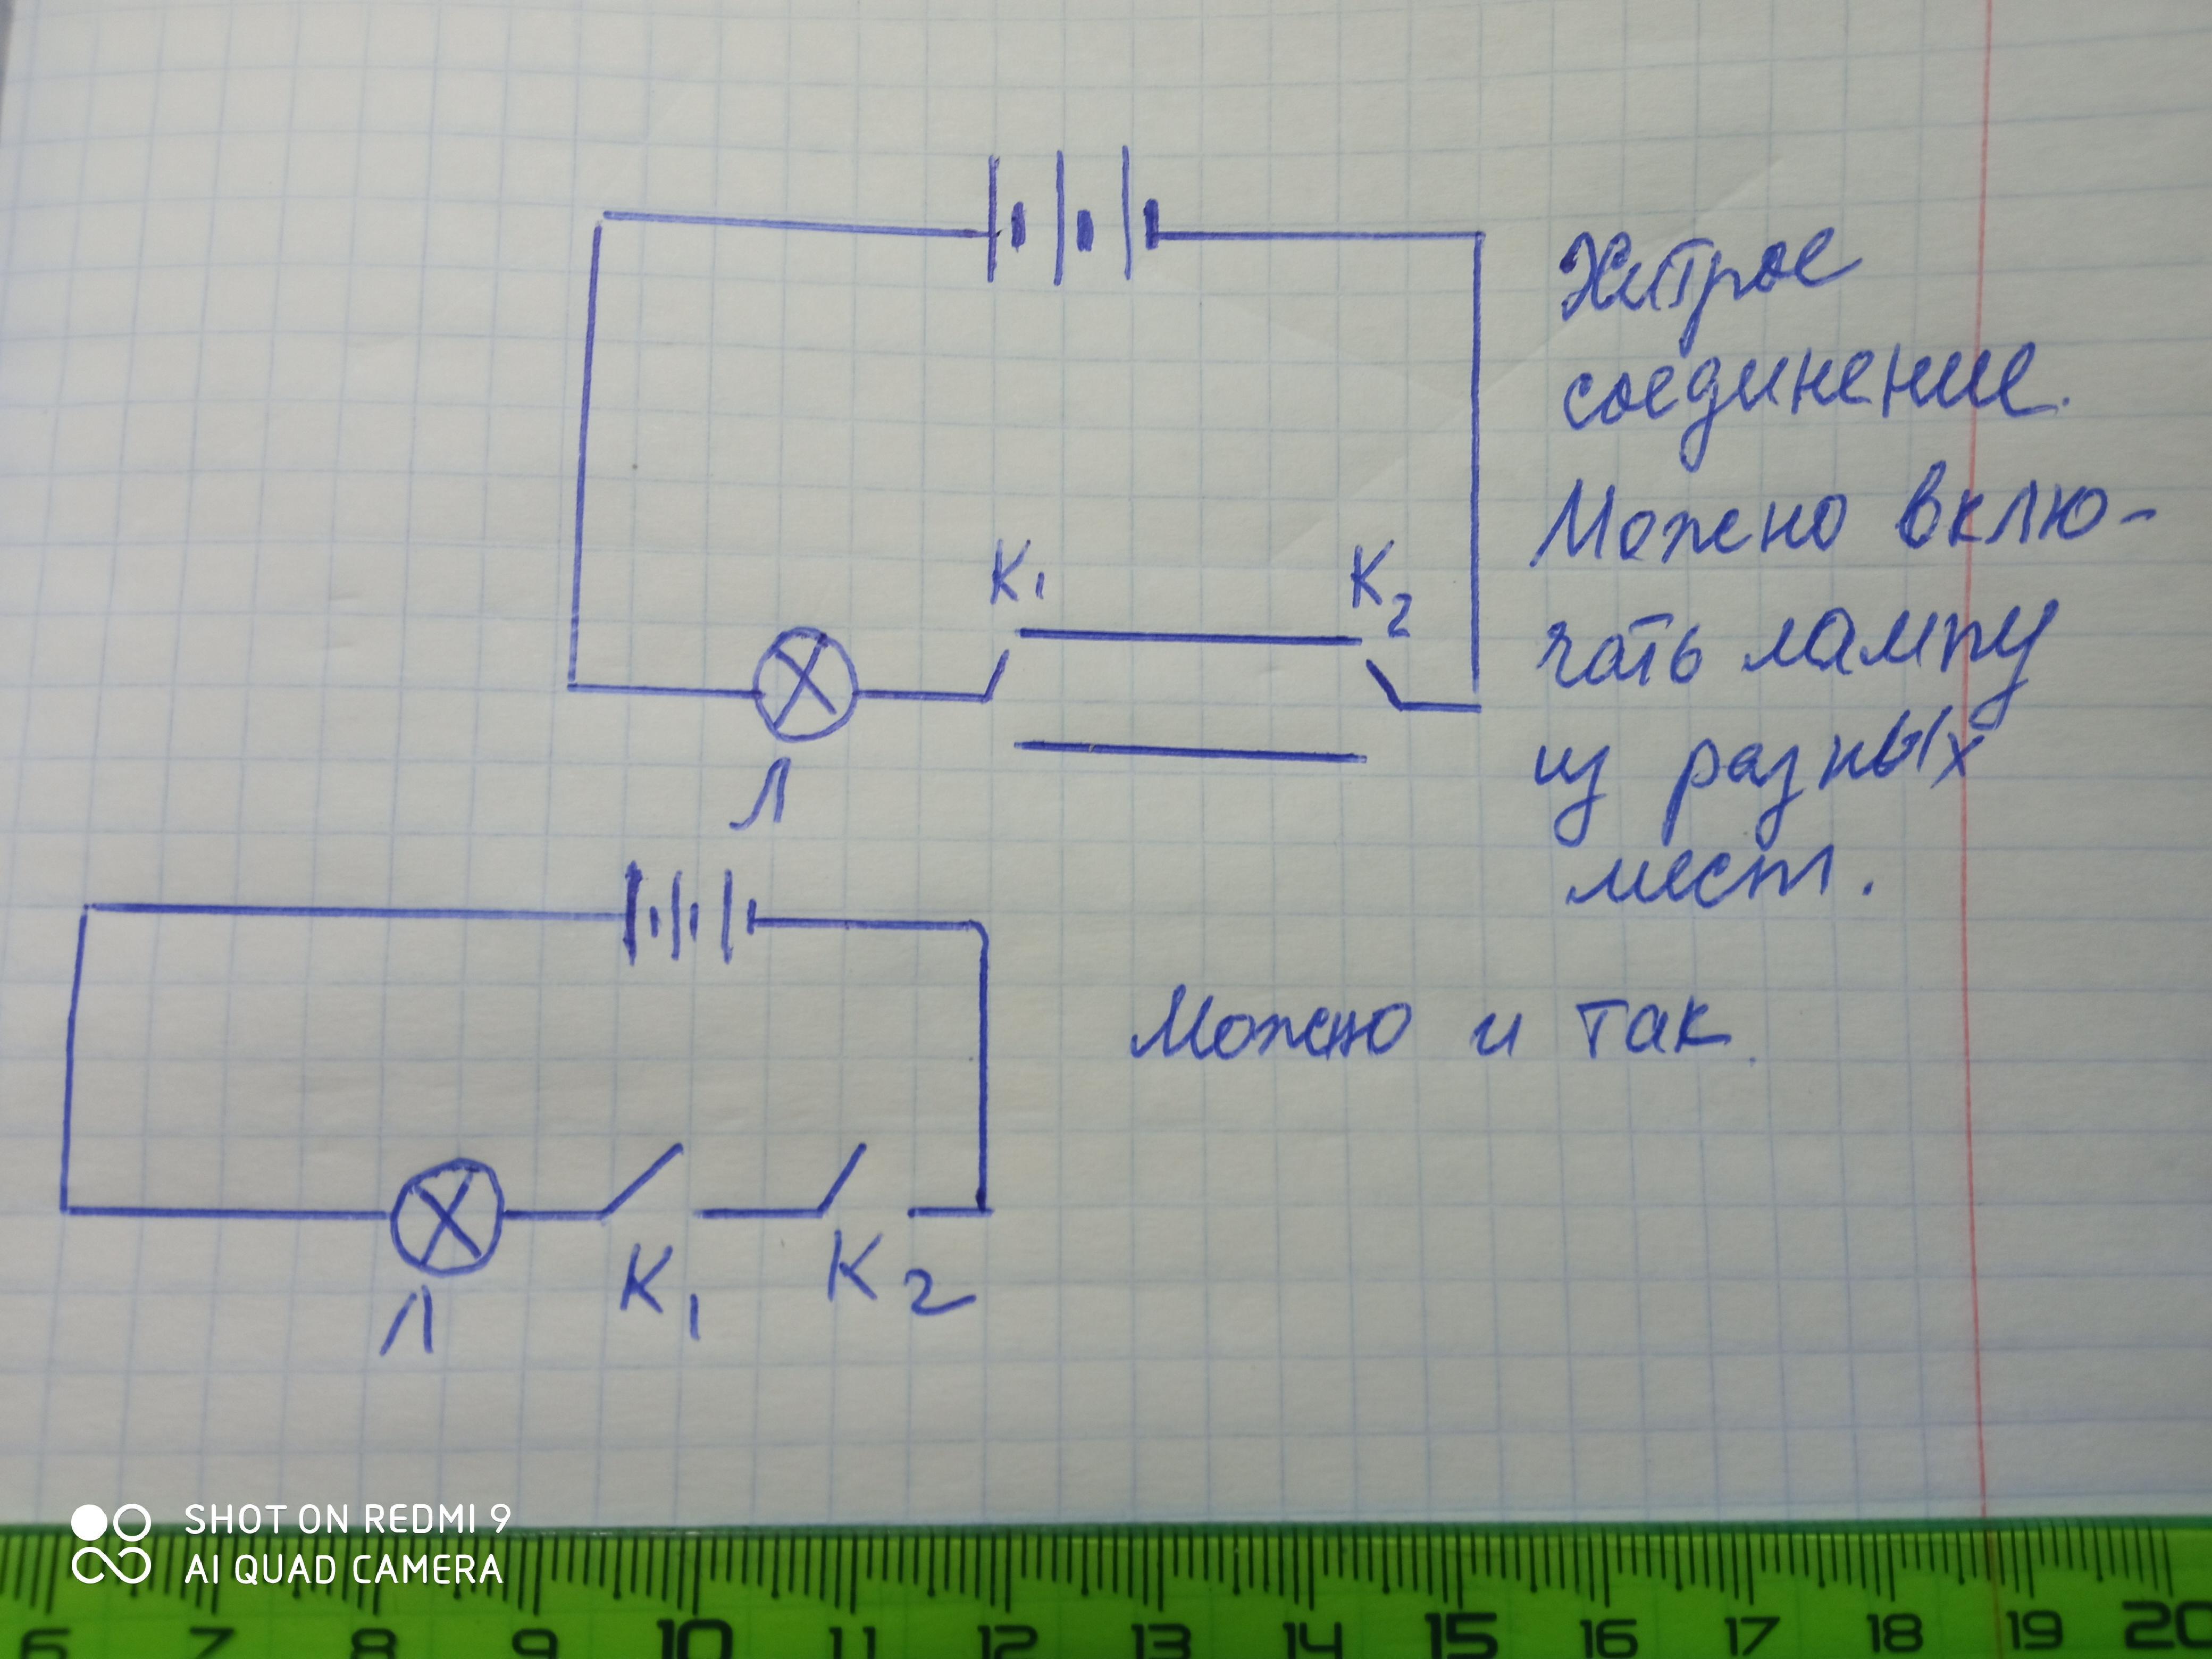 Хитрое
соединение.
Можно вклю-
чать лампу
из разных
мест.
К1
К2
Л
Можно и так
Л
К1
К2
SHOT ON REDMI 9
AI QUAD CAMERA
6 7 8 9 10 11 12 13 14 15 16 17 18 19 20